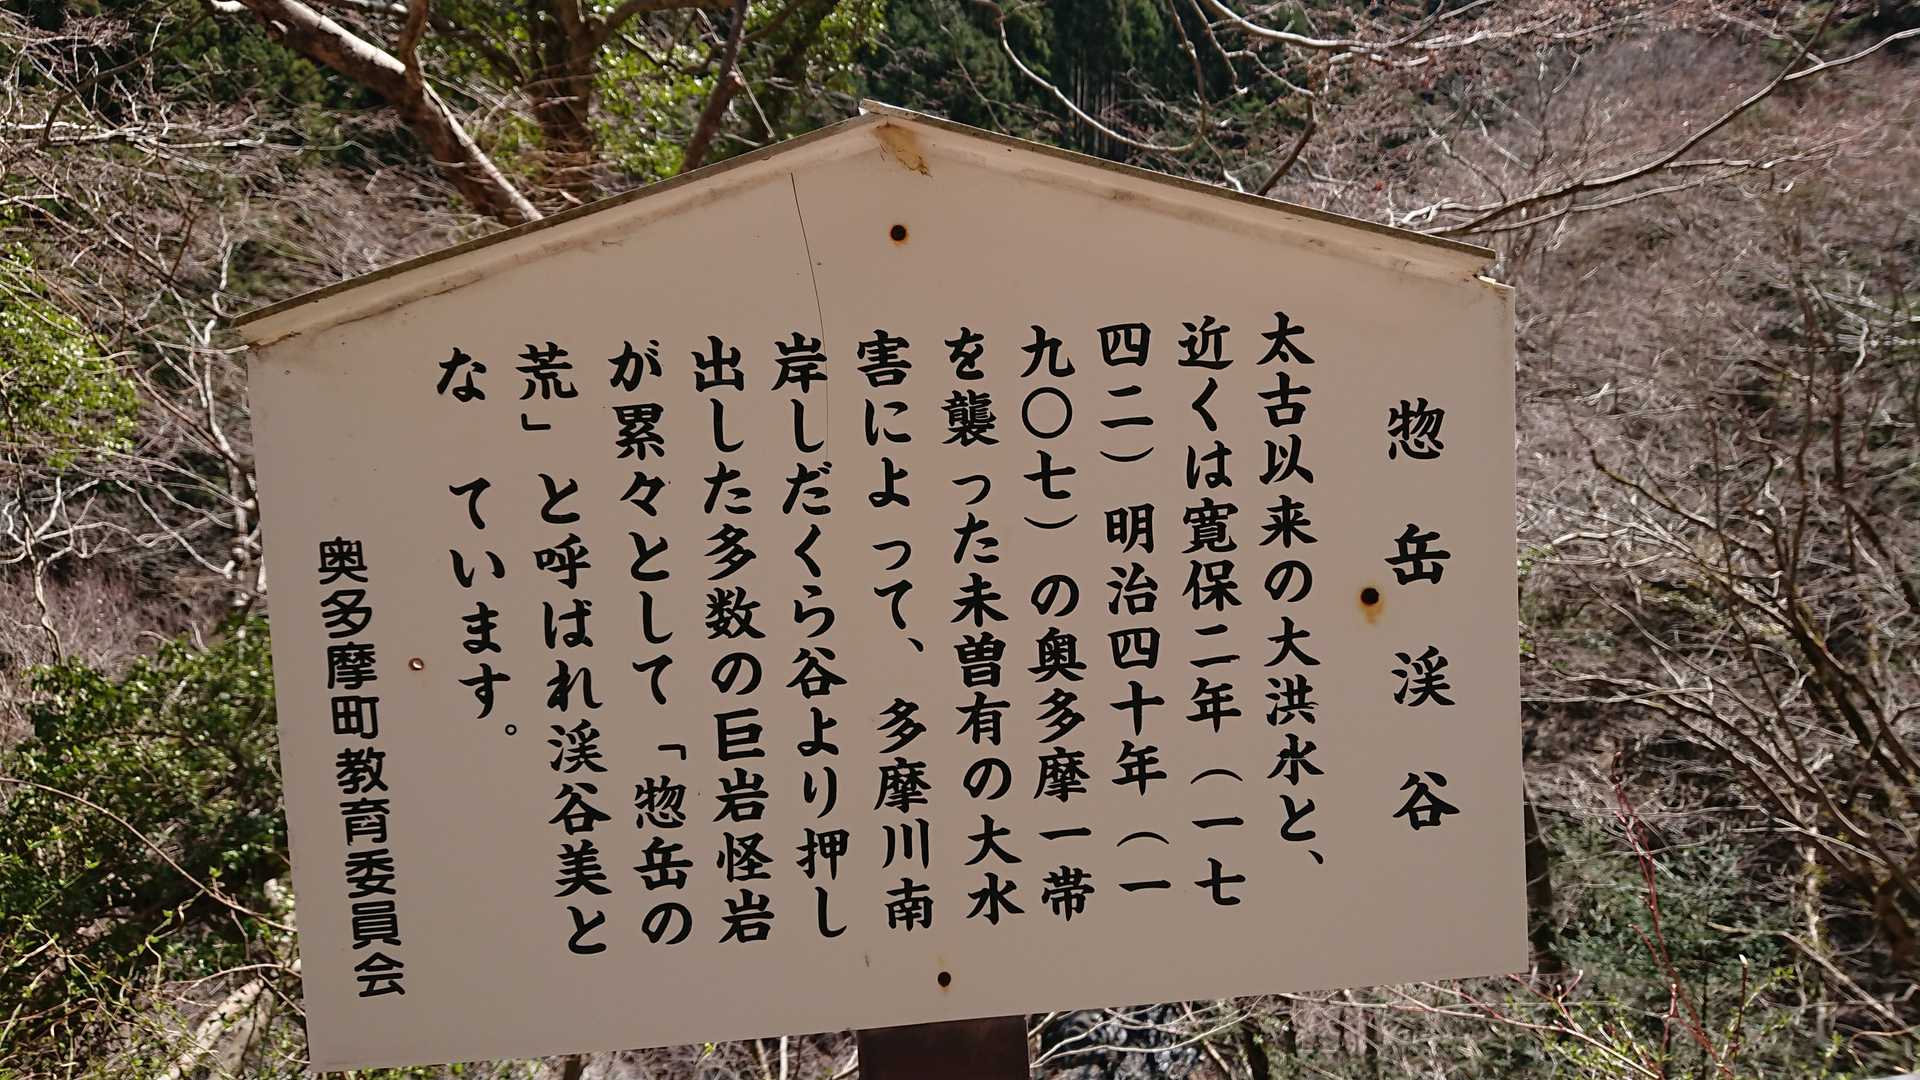 惣岳渓谷
太古以来の大洪水と、
近くは寛保二年（一七
四二）明治四十年（一
九〇七）の奥多摩一帯
を襲った未曽有の大水
害によって、多摩川南
岸しだくら谷より押し
出した多数の巨岩怪岩
が累々として「惣岳の
荒」と呼ばれ渓谷美と
なています。
奥多摩町教育委員会